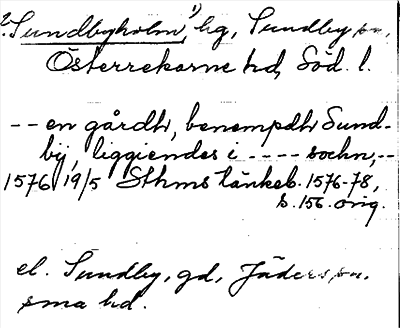 2. Sundbyholm,¹⁾ hg, Sundby sn,
Österrekarne hd, Söd. l.
-- en gårdh, benempdh Sund-
bÿ, liggiendes i ---- sochn, --
1576 19/5 Sthms tänkeb. 1576-78,
s. 156. orig.
el. Sundby, gd, Jäders sn,
sma hd.